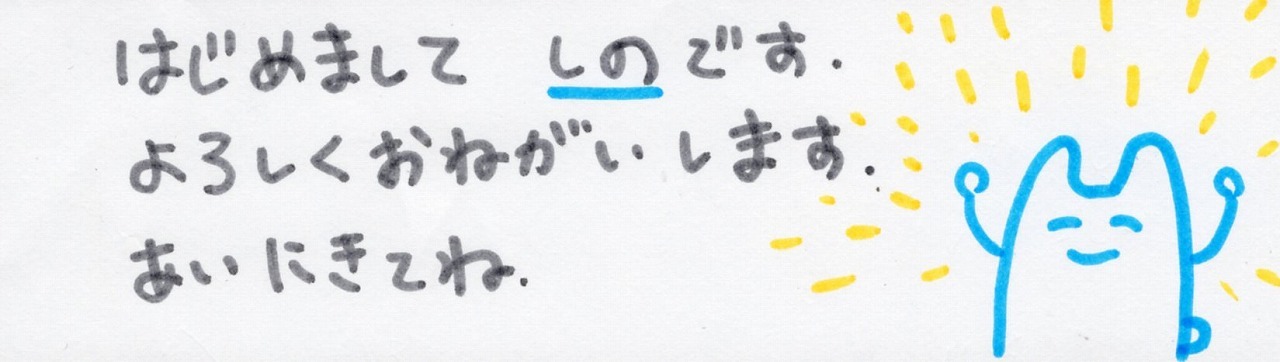 はじめまして しのです.
よろしくおねがいします.
あいにきてね.